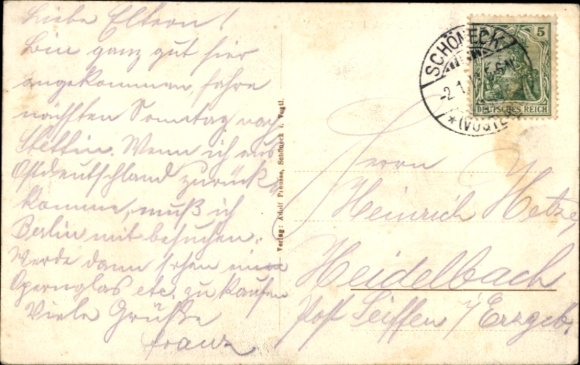 Liebe Eltern!
Bin ganz gut hier
angekommen, fahre
nächsten Sonntag nach
Stettin. Wenn ich aus
Ostdeutschland zurück
komme, muß ich
Berlin mit besuchen.
Werde dann sehen ein
Opernglas etc. zu kaufen
Viele Grüße
Franz
Verlag: Adolf Schöneck i. Vogtl.
SCHÖNECK
(VOGTL.)
5
DEUTSCHES REICH
Herrn
Heinrich Hetze
Heidelbach
Post Seiffen i/Erzgeb.